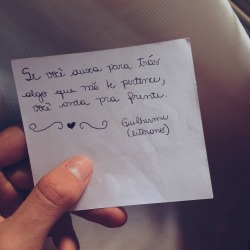 Se você deixa para trás
algo que não te pertence,
você anda pra frente.
Guilherme